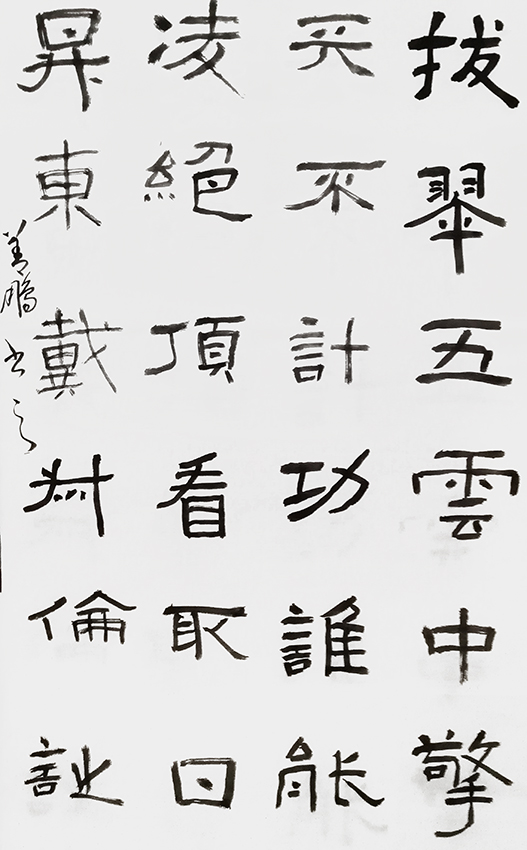 拔翠五雲中擎
天不計功誰能
凌絕頂看取日
昇東戴叔倫詩
善鵬书之